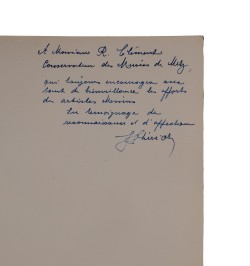 A Monsieur R. Clément
Conservateur des Musées de Metz,
qui toujours encouragea avec
tant de bienveillance les efforts
des artistes Messins
En témoignage de
reconnaissance et d'affection